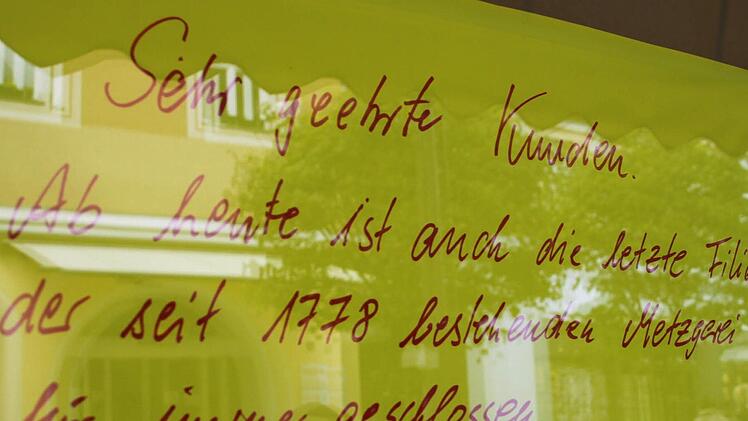 Sehr geehrte Kunden.
Ab heute ist auch die letzte Filia
der seit 1778 bestehenden Metzgerei
für immer geschlossen